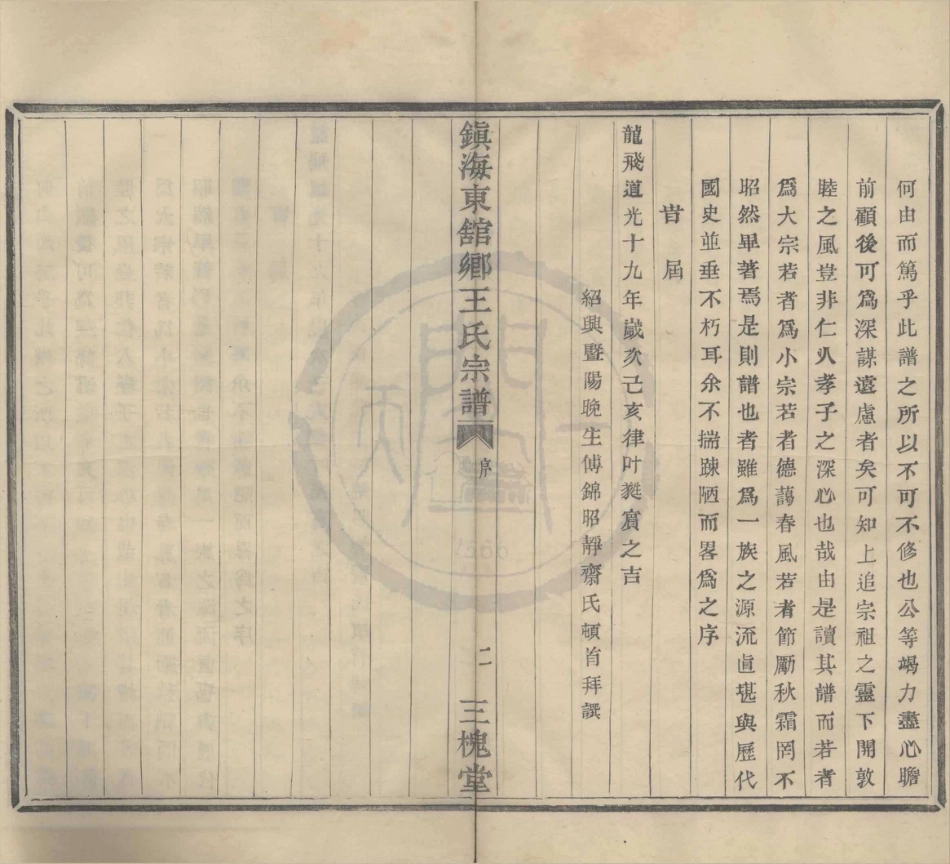 何由而篤乎此譜之所以不可不修也公等竭力盡心瞻
前顧後可爲深謀遠慮者矣可知上追宗祖之靈下開敦
睦之風豈非仁人孝子之深心也哉由是讀其譜而若者
爲大宗若者爲小宗若者德蕩春風若者節勵秋霜罔不
昭然畢著焉是則譜也者雖爲一族之源流直堪與歷代
國史並垂不朽耳余不揣踈陋而畧爲之序
旹屆
龍飛道光十九年歲次己亥律叶蕤賓之吉
紹興暨陽晚生傅錦昭靜齋氏頓首拜譔
鎮海東舘鄉王氏宗譜 序 二 三槐堂
1566